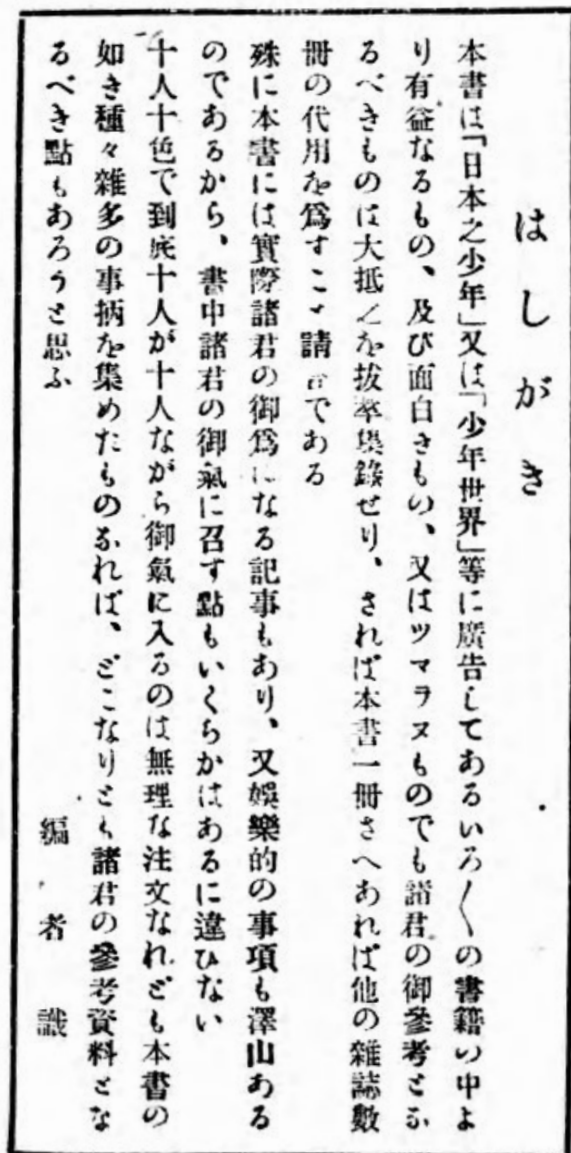 はしがき
本書は「日本之少年」又は「少年世界」等に廣告してあるいろ〳〵の書籍の中よ
り有益なるもの、及び面白きもの、又はツマラヌものでも諸君の御參考とな
るべきものは大抵之を拔萃集錄せり、されば本書一冊さへあれば他の雜誌數
冊の代用を爲すこと請合である
殊に本書には實際諸君の御爲になる記事もあり、又娛樂的の事項も澤山ある
のであるから、書中諸君の御氣に召す點もいくらかはあるに違ひない
十人十色で到底十人が十人ながら御氣に入るのは無理な注文なれども本書の
如き種々雜多の事柄を集めたものなれば、どこなりとも諸君の參考資料とな
るべき點もあろうと思ふ
編者識